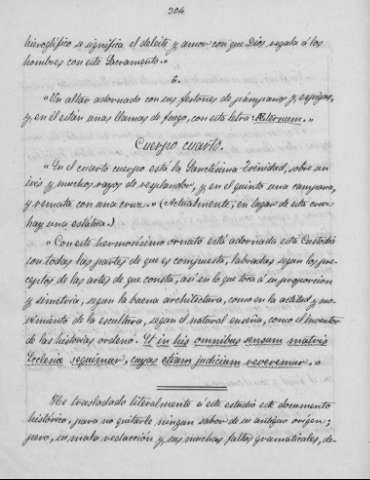 304
hieroglífico se significa el deleite y amor con que Dios regala á los
hombres con este Sacramento."
6.
"Un altar adornado con sus festones de pámpanos y espigas,
y en él están unas llamas de fuego, con esta letra: Æternum."
Cuerpo cuarto.
"En el cuarto cuerpo está la Santísima Trinidad, sobre un
iris y muchos rayos de resplandor, y en el quinto una campana,
y remata con una cruz." (Actualmente, en lugar de esta cruz
hay una estátua.)
"Con este hermosísimo ornato está adornada esta Custodia
con todas las partes de que es compuesta, labradas segun los pre-
ceptos de las artes de que consta, así en lo que toca á su proporcion
y simetría, segun la buena architectura, como en la actitud y mo-
vimiento de la escultura, segun el natural enseña, como el inventor
de las historias ordeno. Et in his omnibus sensum matris
Ecclesiæ sequimur, cujus etiam judicium reveremur."
He trasladado literalmente á este estudio este documento
histórico, para no quitarle ningun sabor de su antiguo orígen;
pero, su mala redacción y sus muchas faltas gramaticales, de-